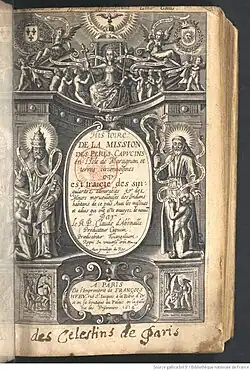 HISTOIRE
DE LA MISSION
DES PERES CAPVCINS
en l'Isle de Maragnan et
terres circonuoisines
OV
est traicte des sin-
gularitez admirables & des
Mœurs merueilleuses des Indiens
habitans de ce pais Auec les missiues
et aduis qui ont este enuoyez de nouueau
Par
le R.P. Claude d'Abbeuille
Predicateur Capucin
A PARIS
De l'Imprimerie de FRANÇOIS
HVBY, rue St Iacques
et en sa boutique au Palais en la gale-
rie des Prisonniers 1614
des Celestins de Paris
Source gallica.bnf.fr / Bibliothèque nationale de France